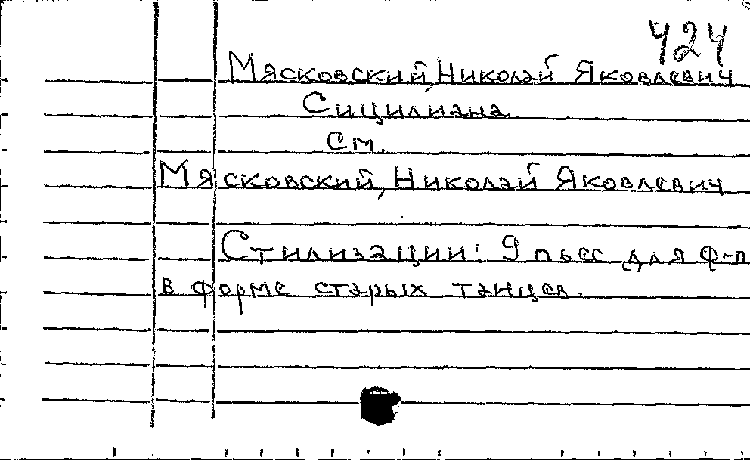 424
Мясковский, Николай Яковлевич
Сицилиана
см.
Мясковский, Николай Яковлевич
Стилизации: 9 пьес для ф-п
в форме старых танцев.